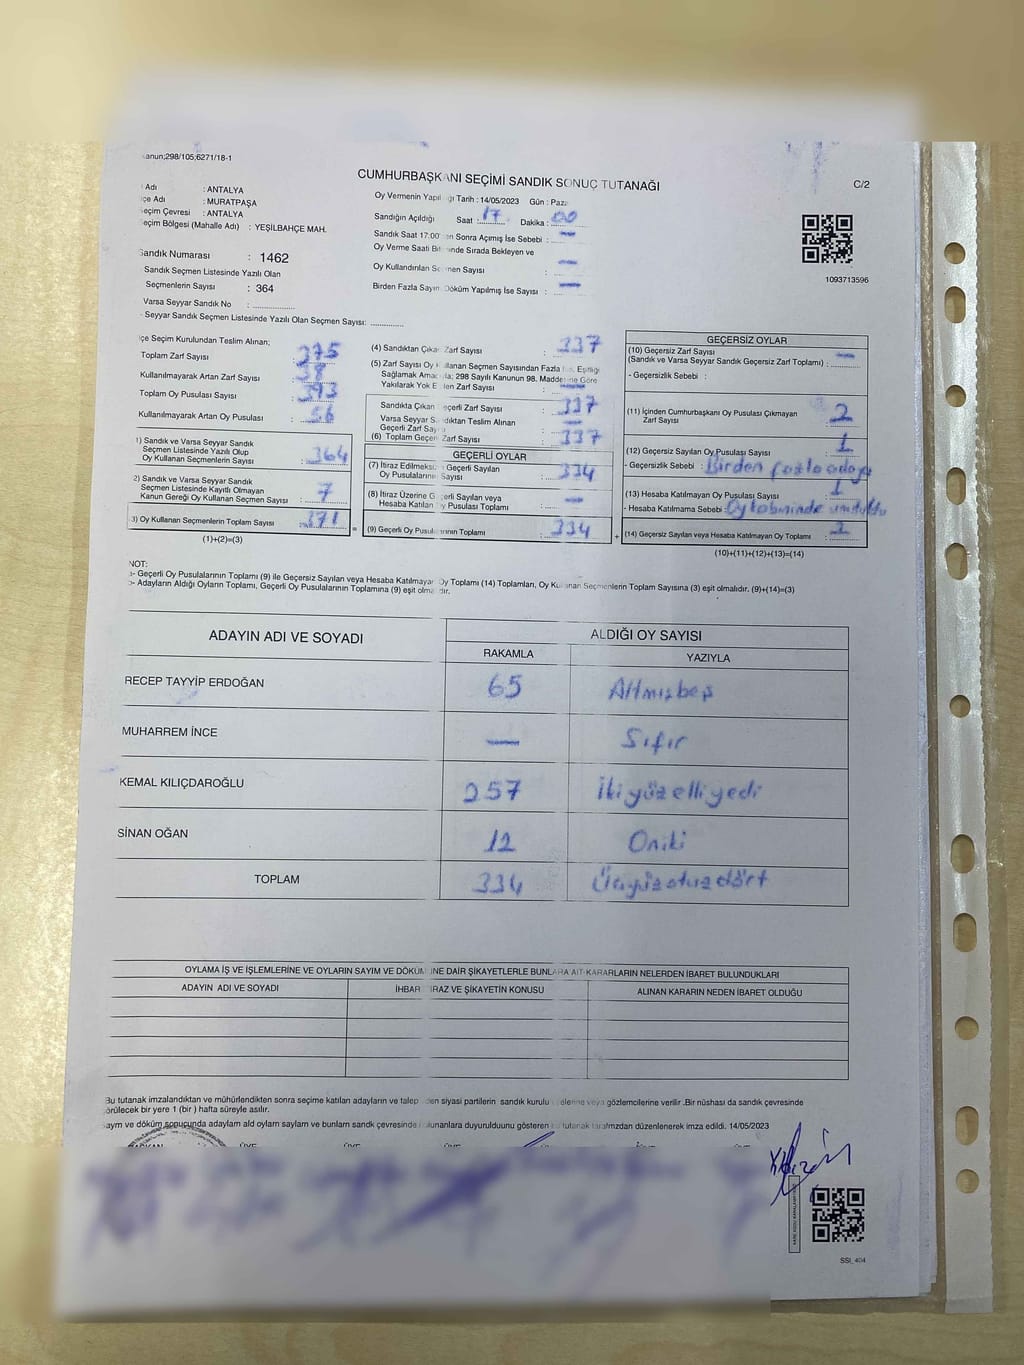 anun;298/105;6271/18-1
CUMHURBAŞKANI SEÇİMİ SANDIK SONUÇ TUTANAĞI
C/2
Adı : ANTALYA
çe Adı : MURATPAŞA
eçim Çevresi : ANTALYA
eçim Bölgesi (Mahalle Adı) : YEŞİLBAHÇE MAH.
Sandık Numarası : 1462
Sandık Seçmen Listesinde Yazılı Olan
Seçmenlerin Sayısı : 364
Varsa Seyyar Sandık No :
Seyyar Sandık Seçmen Listesinde Yazılı Olan Seçmen Sayısı:
Oy Vermenin Yapıl ğı Tarih : 14/05/2023 Gün : Paza
Sandığın Açıldığı Saat : 17 Dakika : 00
Sandık Saat 17:00' en Sonra Açımış İse Sebebi : —
Oy Verme Saati Bit inde Sırada Bekleyen ve
Oy Kullandırılan Se men Sayısı : —
Birden Fazla Sayın Döküm Yapılmış İse Sayısı : —
1093713596
çe Seçim Kurulundan Teslim Alınan;
Toplam Zarf Sayısı : 375
Kullanılmayarak Artan Zarf Sayısı : 38
Toplam Oy Pusulası Sayısı : 393
Kullanılmayarak Artan Oy Pusulası : 56
1) Sandık ve Varsa Seyyar Sandık
Seçmen Listesinde Yazılı Olup
Oy Kullanan Seçmenlerin Sayısı : 364
2) Sandık ve Varsa Seyyar Sandık
Seçmen Listesinde Kayıtlı Olmayan
Kanun Gereği Oy Kullanan Seçmen Sayısı : 7
3) Oy Kullanan Seçmenlerin Toplam Sayısı : 371
(1)+(2)=(3)
(4) Sandıktan Çıka Zarf Sayısı : 337
(5) Zarf Sayısı Oy K llanan Seçmen Sayısından Fazla İse, Eşitliği
Sağlamak Amac la; 298 Sayılı Kanunun 98. Maddesine Göre
Yakılarak Yok E len Zarf Sayısı : —
Sandıkta Çıkan eçerli Zarf Sayısı : 337
Varsa Seyyar S dıktan Teslim Alınan
Geçerli Zarf Say ı : —
(6) Toplam Geçer Zarf Sayısı : 337
GEÇERLİ OYLAR
(7) İtiraz Edilmeksiz Geçerli Sayılan
Oy Pusulalarını Sayısı : 334
(8) İtiraz Üzerine G erli Sayılan veya
Hesaba Katılan y Pusulası Toplamı : —
(9) Geçerli Oy Pusu rının Toplamı : 334
GEÇERSİZ OYLAR
(10) Geçersiz Zarf Sayısı
(Sandık ve Varsa Seyyar Sandık Geçersiz Zarf Toplamı) : —
- Geçersizlik Sebebi :
(11) İçinden Cumhurbaşkanı Oy Pusulası Çıkmayan
Zarf Sayısı : 2
(12) Geçersiz Sayılan Oy Pusulası Sayısı : 1
- Geçersizlik Sebebi : Birden fazla adaya
(13) Hesaba Katılmayan Oy Pusulası Sayısı : 1
- Hesaba Katılmama Sebebi : Oy kabininde unutuldu
(14) Geçersiz Sayılan veya Hesaba Katılmayan Oy Toplamı :
(10)+(11)+(12)+(13)=(14)
NOT:
a- Geçerli Oy Pusulalarının Toplamı (9) ile Geçersiz Sayılan veya Hesaba Katılmayan Oy Toplamı (14) Toplamları, Oy Ku anan Seçmenlerin Toplam Sayısına (3) eşit olmalıdır. (9)+(14)=(3)
b- Adayların Aldığı Oyların Toplamı, Geçerli Oy Pusulalarının Toplamına (9) eşit olmalıdır.
ADAYIN ADI VE SOYADI
ALDIĞI OY SAYISI
RAKAMLA YAZIYLA
RECEP TAYYİP ERDOĞAN 65 Altmışbeş
MUHARREM İNCE — Sıfır
KEMAL KILIÇDAROĞLU 257 İkiyüzelliyedi
SİNAN OĞAN 12 Oniki
TOPLAM 334 Üçyüzotuzdört
OYLAMA İŞ VE İŞLEMLERİNE VE OYLARIN SAYIM VE DÖKÜM NE DAİR ŞİKAYETLERLE BUNLARA AİT KARARLARIN NELERDEN İBARET BULUNDUKLARI
ADAYIN ADI VE SOYADI
İHBAR İRAZ VE ŞİKAYETİN KONUSU
ALINAN KARARIN NEDEN İBARET OLDUĞU
Bu tutanak imzalandıktan ve mühürlendikten sonra seçime katılan adayların ve talep den siyasi partilerin sandık kurulu elerine veya gözlemcilerine verilir .Bir nüshası da sandık çevresinde
örülecek bir yere 1 (bir ) hafta süreyle asılır.
ayım ve döküm sonucunda adayların ald oyların sayları ve bunların sandk çevresinde ulunanlara duyurulduunu gösteren tutanak tarafmzdan düzenlenerek imza edildi. 14/05/2023
SSI_404